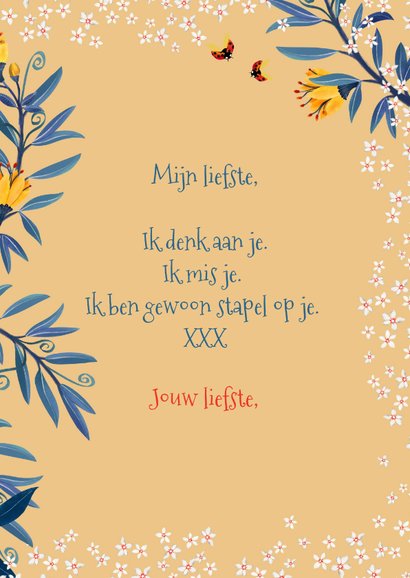 Mijn liefste,
Ik denk aan je.
Ik mis je.
Ik ben gewoon stapel op je.
XXX
Jouw liefste,